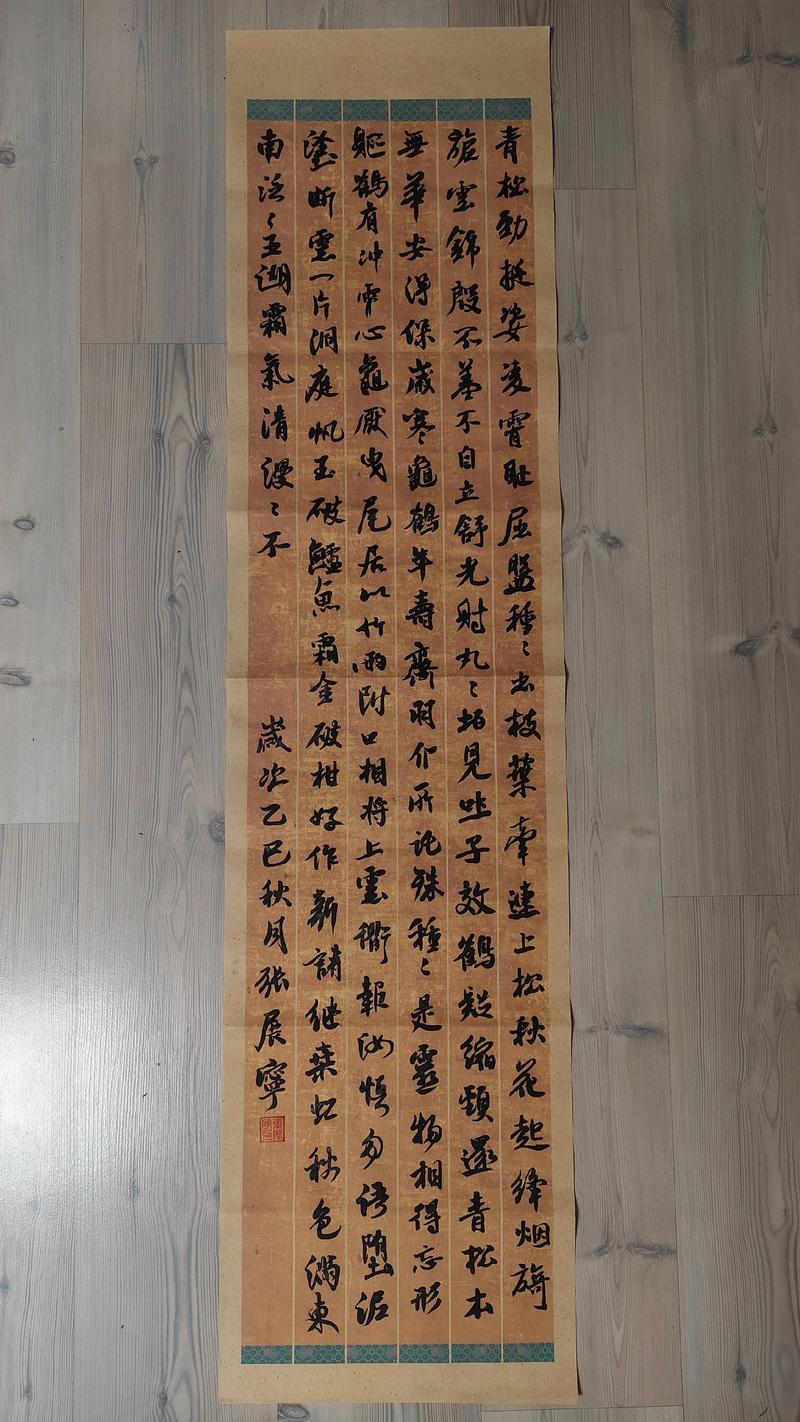 青松勁挺姿凌霄耻屈盤種々出枝葉牽連上松秋花起絳烟旖
旎雲錦殷不羞不自立舒光射丸々栢見吐子效鶴疑縮頸還青松本
無華安得保歲寒龜鶴年壽齊羽介所託殊種々是靈物相得忘形
軀鶴有冲霄心龜厭曳尾居以竹兩附口相將上雲衢報汝慎勿語墮泥
塗斷雲一片洞庭帆玉破鱸魚霜金破柑好作新詩继桒虹秋色滿東
南泛々五湖霜氣清漫々不
歲次乙巳秋月張展寧